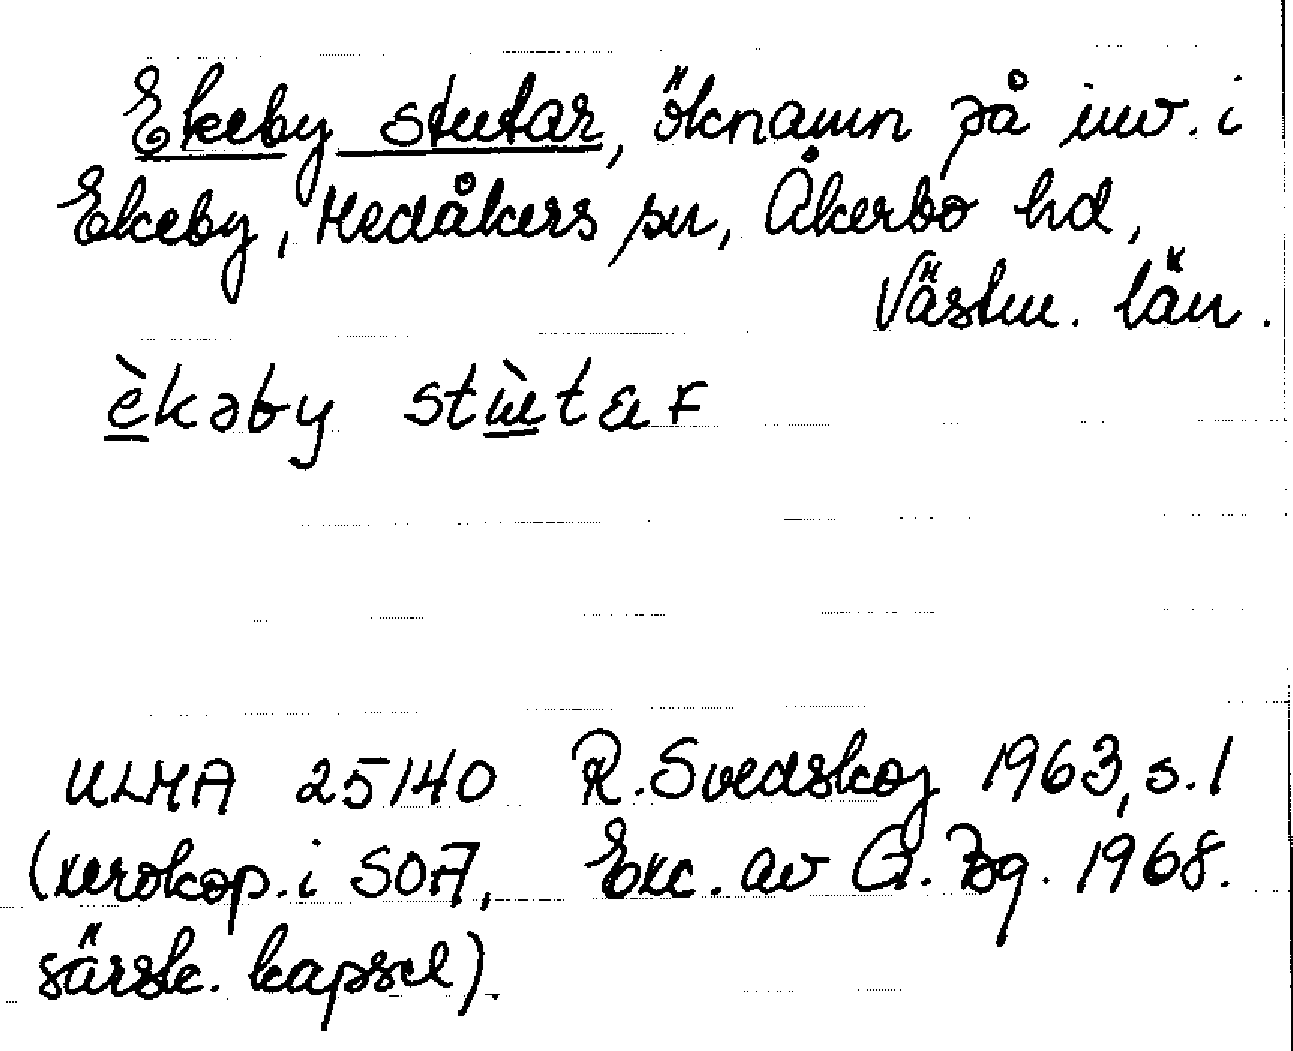 Ekeby stutar, öknamn på inv. i
Ekeby, Medåkers sn, Åkerbo hd,
Västm. län.
èkəby stùtar
ULMA 25140 R. Svedskog 1963, s. 1
(xerokop. i SOA, Exc. av G. Bg. 1968.
särsk. kapsel).